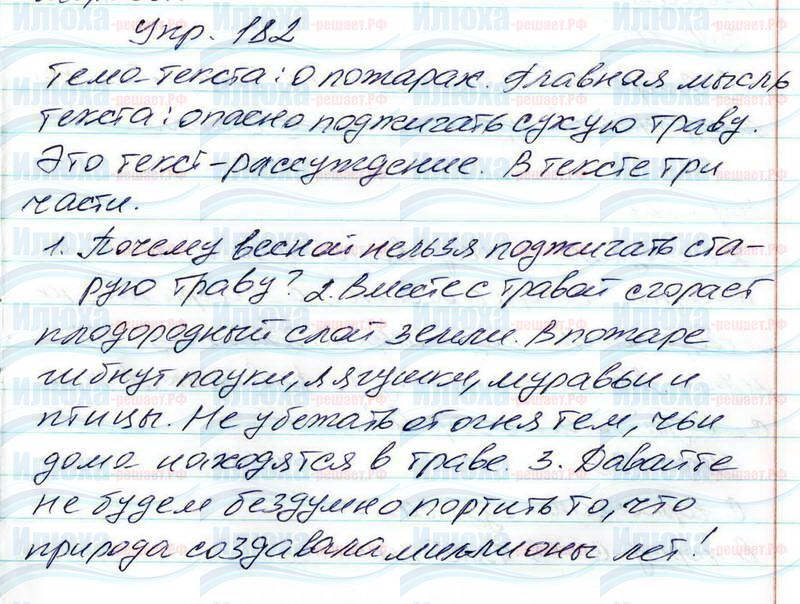 Упр. 182
Тема текста: о пожарах. Главная мысль
текста: опасно поджигать сухую траву.
Это текст-рассуждение. В тексте три
части.
1. Почему весной нельзя поджигать ста-
рую траву? 2. Вместе с травой сгорает
плодородный слой земли. В пожаре
гибнут пауки, лягушки, муравьи и
птицы. Не убежать от огня тем, чьи
дома находятся в траве. 3. Давайте
не будем бездумно портить то, что
природа создавала миллионы лет!